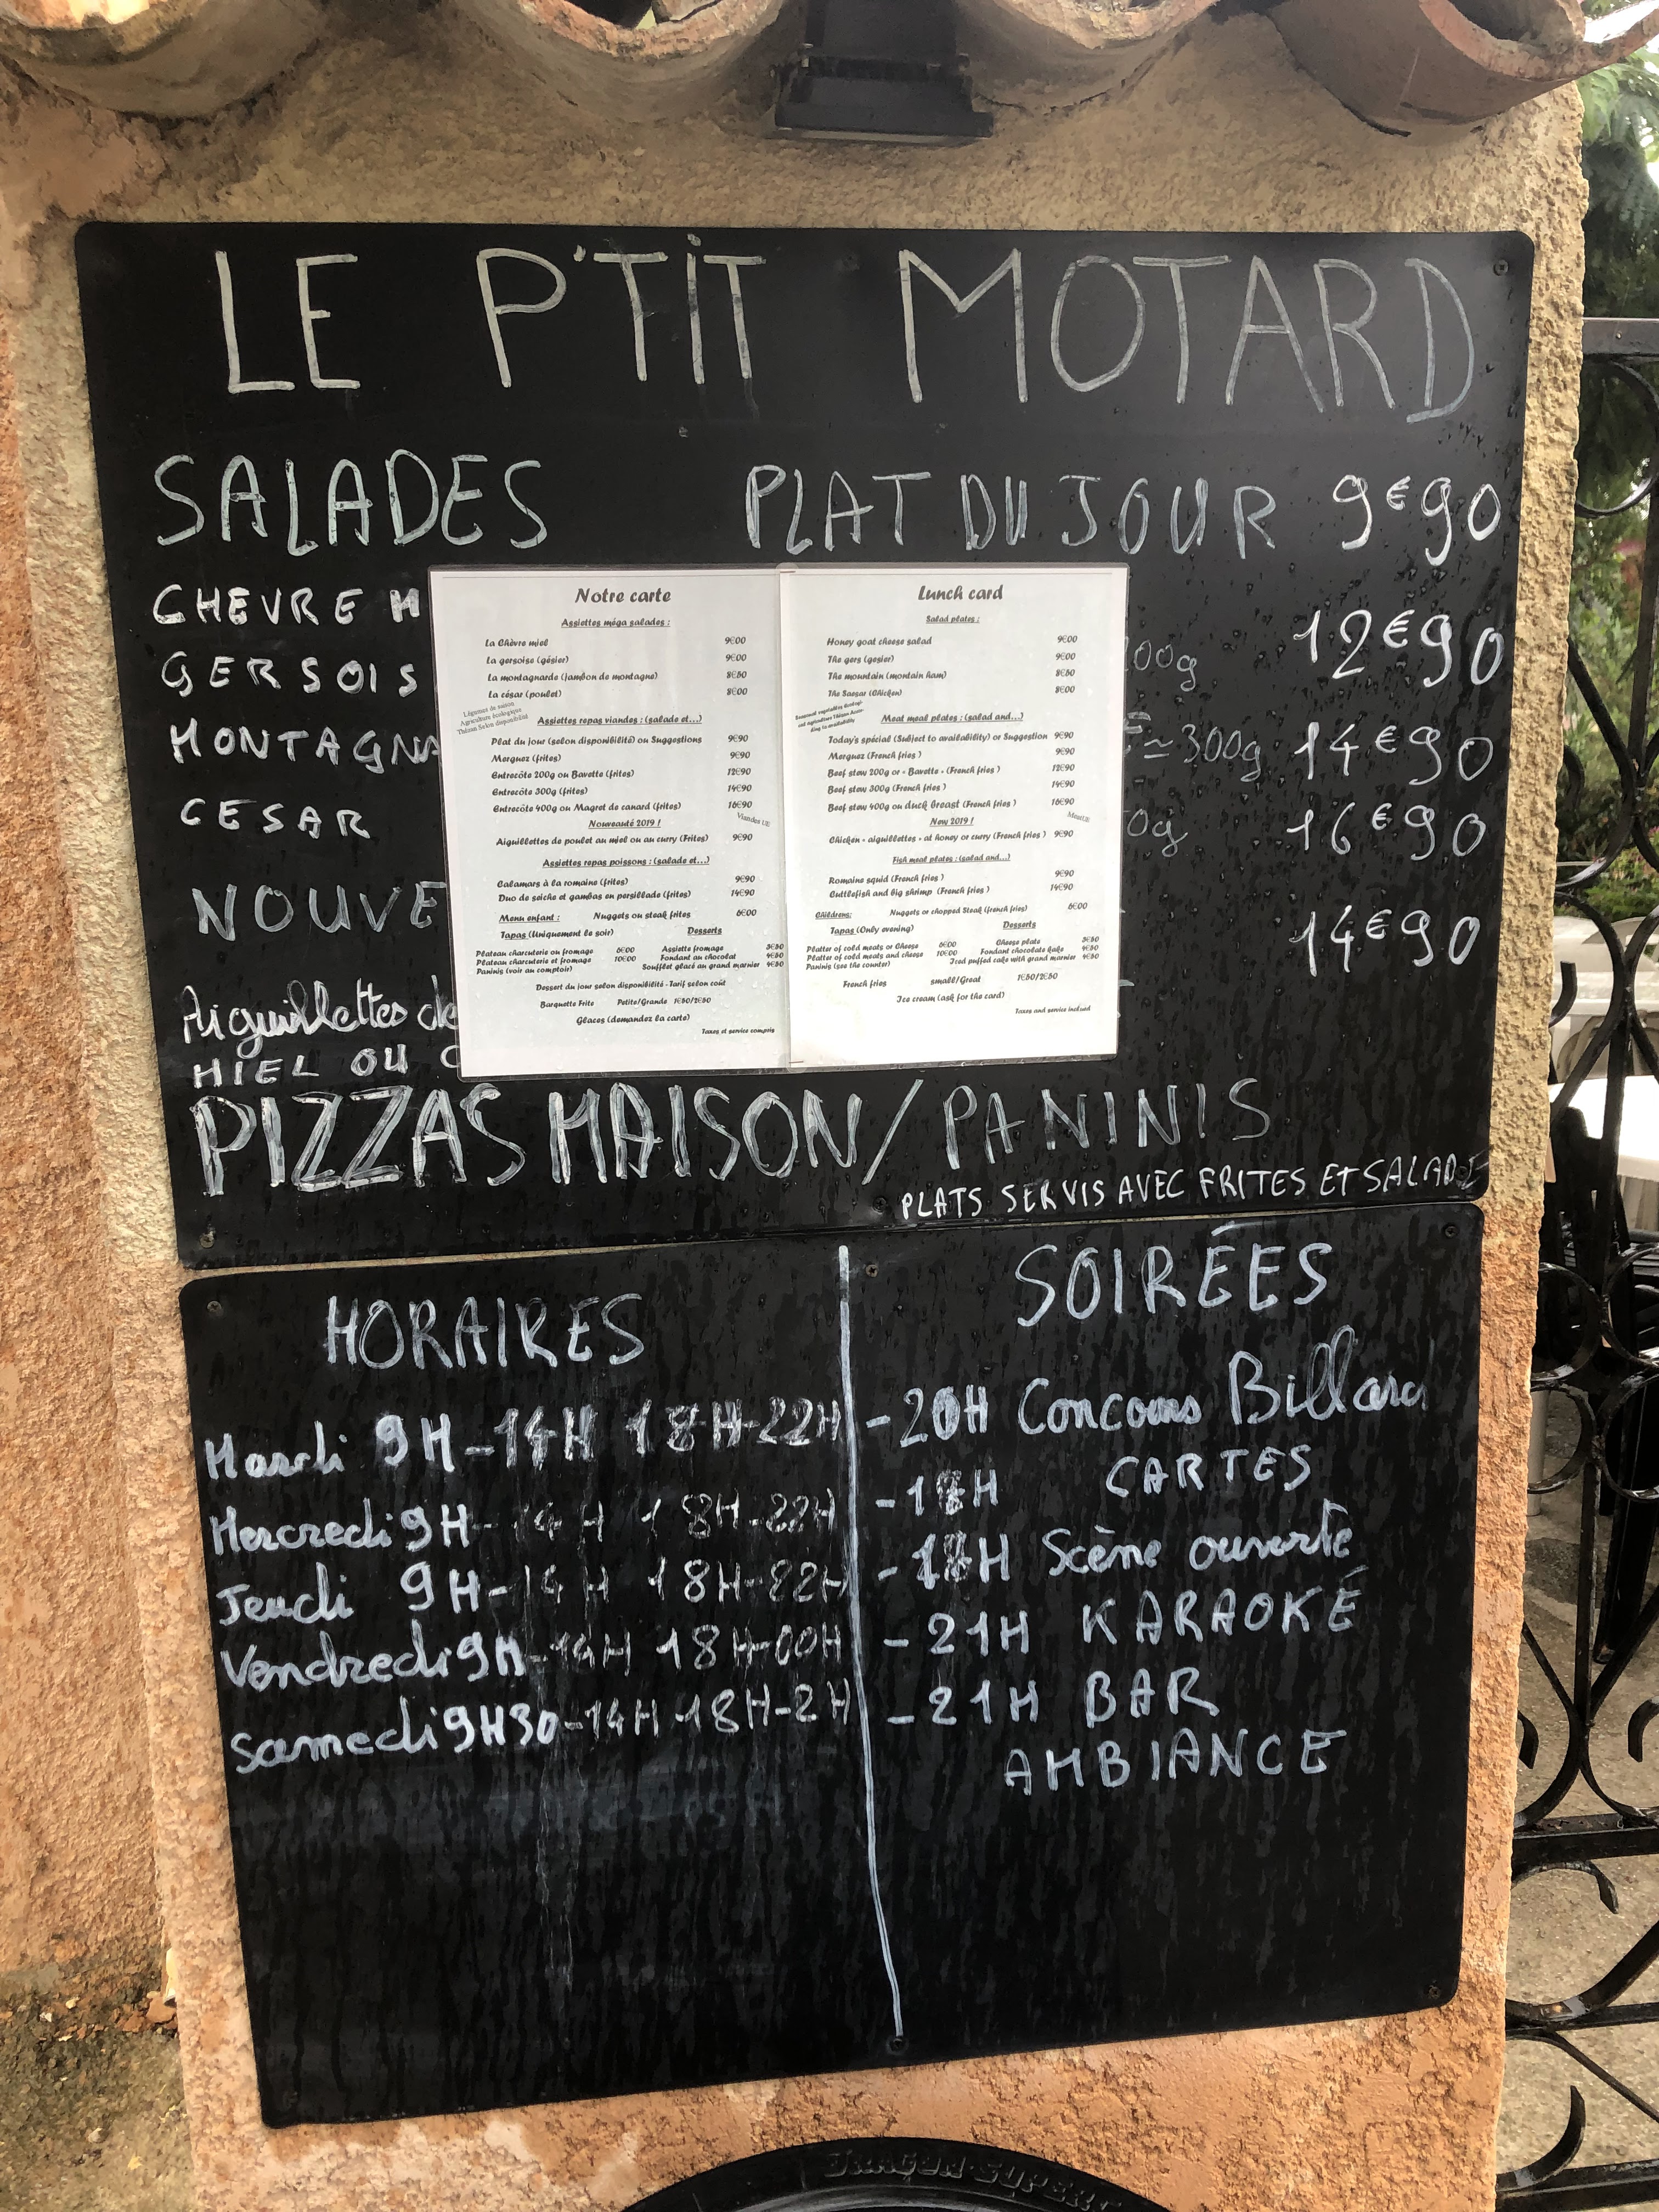 LE P'TIT MOTARD
SALADES PLAT DU JOUR 9€90
CHEVRE M
GERSOIS 00g 12€90
MONTAGNA ~300g 14€90
CESAR 0g 16€90
NOUVE 14€90
Aiguillettes de
MIEL OU C
PIZZAS MAISON/PANINIS
PLATS SERVIS AVEC FRITES ET SALADE
Notre carte
Assiettes méga salades :
La Chèvre miel 9€00
La gersoise (gésier) 9€00
La montagnarde (jambon de montagne) 8€50
La césar (poulet) 8€00
Légumes de saison
Agriculture écologique
Thézan Selon disponibilité
Assiettes repas viandes : (salade et...)
Plat du jour (selon disponibilité) ou Suggestions 9€90
Merguez (frites) 9€90
Entrecôte 200g ou Bavette (frites) 12€90
Entrecôte 300g (frites) 14€90
Entrecôte 400g ou Magret de canard (frites) 16€90
Viandes UE
Nouveauté 2019 !
Aiguillettes de poulet au miel ou au curry (Frites) 9€90
Assiettes repas poissons : (salade et...)
Calamars à la romaine (frites) 9€90
Duo de seiche et gambas en persillade (frites) 14€90
Menu enfant : Nuggets ou steak frites 6€00
Tapas (Uniquement le soir) Desserts
Plateau charcuterie ou fromage 6€00 Assiette fromage 3€50
Plateau charcuterie et fromage 10€00 Fondant au chocolat 4€50
Paninis (voir au comptoir) Soufflet glacé au grand marnier 4€50
Dessert du jour selon disponibilité - Tarif selon coût
Barquette Frite Petite/Grande 1€50/2€50
Glaces (demandez la carte)
Taxes et service compris
Lunch card
Salad plates :
Honey goat cheese salad 9€00
The gers (gesier) 9€00
The mountain (montain ham) 8€50
The Saesar (Chicken) 8€00
Seasonal vegetables ecologi-
cal agriculture Thézan Accor-
ding to availability
Meat meal plates : (salad and...)
Today's spécial (Subject to availability) or Suggestion 9€90
Merguez (French fries ) 9€90
Beef stew 200g or « Bavette » (French fries ) 12€90
Beef stew 300g (French fries ) 14€90
Beef stew 400g ou duck breast (French fries ) 16€90
Meat UE
New 2019 !
Chicken « aiguillettes » at honey or curry (French fries ) 9€90
Fish meal plates : (salad and...)
Romaine squid (French fries ) 9€90
Cuttlefish and big shrimp (French fries ) 14€90
Childrens: Nuggets or chopped Steak (french fries) 6€00
Tapas (Only evening) Desserts
Platter of cold meats or Cheese 6€00 Cheese plate 3€50
Platter of cold meats and cheese 10€00 Fondant chocolate kake 4€50
Paninis (see the counter) Iced puffed cake with grand marnier 4€50
French fries small/Great 1€50/2€50
Ice cream (ask for the card)
Taxes and service inclued
HORAIRES
Mardi 9H-14H 18H-22H
Mercredi 9H-14H 18H-22H
Jeudi 9H-14H 18H-22H
Vendredi 9H-14H 18H-00H
Samedi 9H30-14H 18H-2H
SOIRÉES
-20H Concours Billard
-18H CARTES
-18H Scène ouverte
-21H KARAOKÉ
-21H BAR
AMBIANCE
DRAGON SUPERC